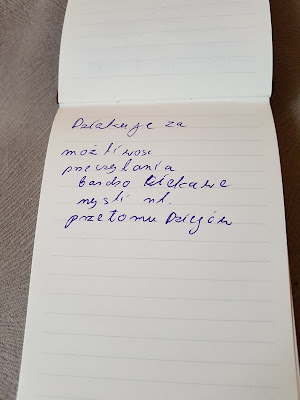 Dziękuję za
możliwość
przeczytania
bardzo ciekawe
myśli nt.
przełomu Dziejów